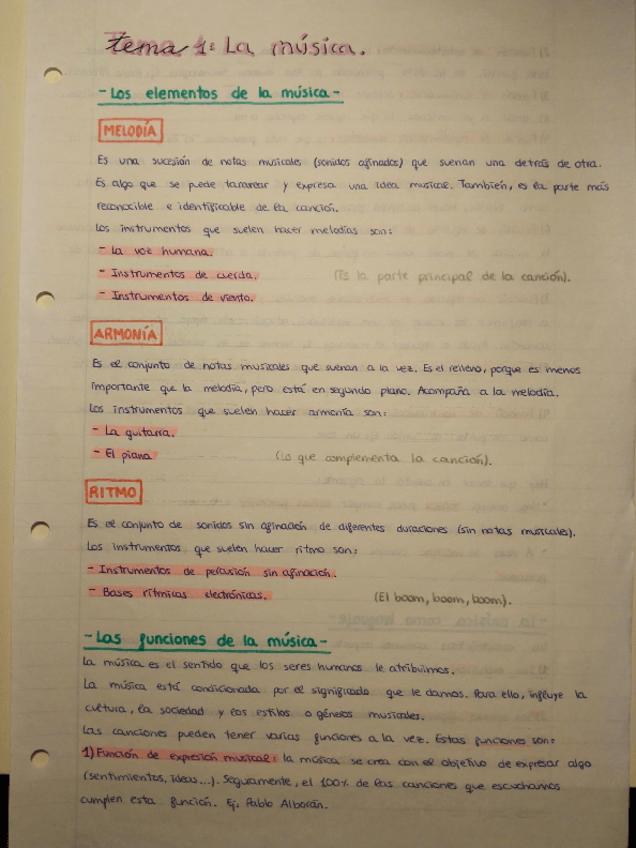 Tema 1: La música.
- Los elementos de la música -
MELODÍA
Es una sucesión de notas musicales (sonidos afinados) que suenan una detrás de otra.
Es algo que se puede tararear y expresa una idea musical. También, es la parte más
reconocible e identificable de la canción.
Los instrumentos que suelen hacer melodías son:
- La voz humana.
- Instrumentos de cuerda. (Es la parte principal de la canción).
- Instrumentos de viento.
ARMONÍA
Es el conjunto de notas musicales que suenan a la vez. Es el relleno, porque es menos
importante que la melodía, pero está en segundo plano. Acompaña a la melodía.
Los instrumentos que suelen hacer armonía son:
- La guitarra.
- El piano (Lo que complementa la canción).
RITMO
Es el conjunto de sonidos sin afinación de diferentes duraciones (sin notas musicales).
Los instrumentos que suelen hacer ritmo son:
- Instrumentos de percusión sin afinación.
- Bases rítmicas electrónicas. (El boom, boom, boom).
- Las funciones de la música -
La música es el sentido que los seres humanos le atribuimos.
La música está condicionada por el significado que le damos. Para ello, influye la
cultura, la sociedad y los estilos o géneros musicales.
Las canciones pueden tener varias funciones a la vez. Estas funciones son:
1) Función de expresión musical: la música se crea con el objetivo de expresar algo
(sentimientos, ideas...). Seguramente, el 100% de las canciones que escuchamos
cumplen esta función. Ej. Pablo Alborán.